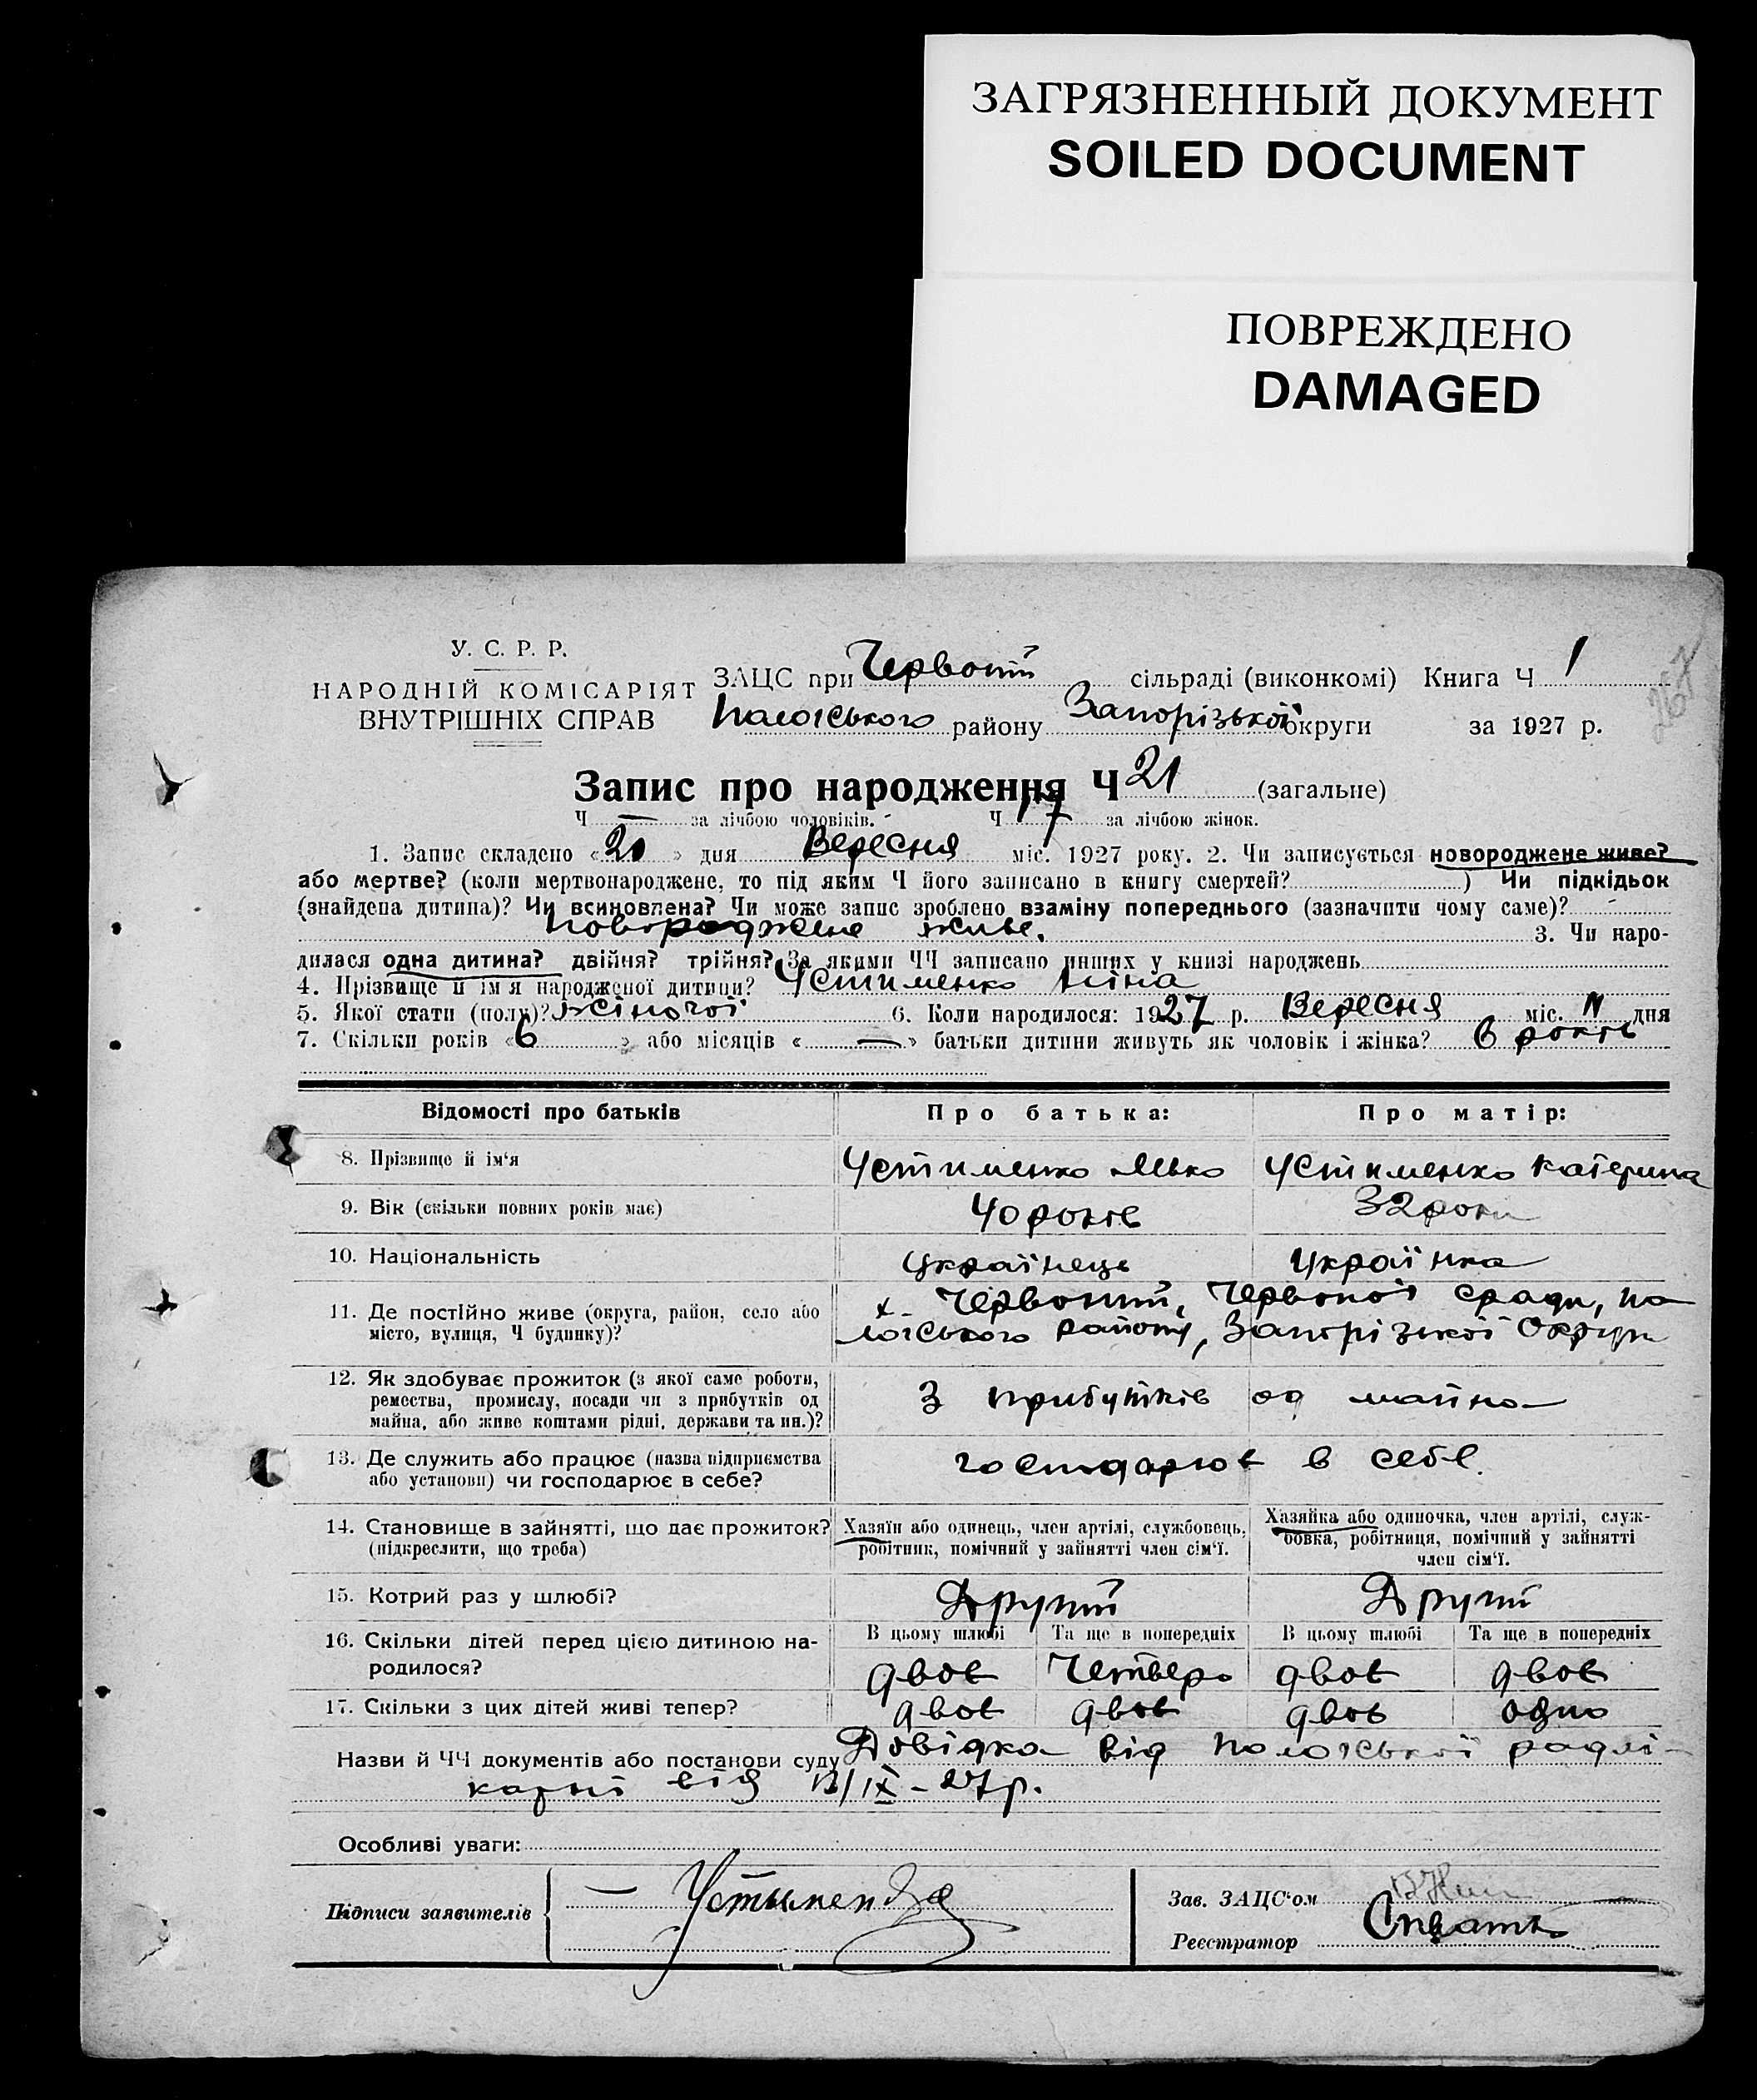 ЗАГРЯЗНЕННЫЙ ДОКУМЕНТ
SOILED DOCUMENT
ПОВРЕЖДЕНО
DAMAGED
У. С. Р. Р.
НАРОДНІЙ КОМІСАРІЯТ
ВНУТРІШНІХ СПРАВ
ЗАЦС при Червоній сільраді (виконкомі) Книга Ч 1
Пологського району Запорізької округи за 1927 р.
267
Запис про народження Ч 21 (загальне)
Ч — за лічбою чоловіків. Ч 17 за лічбою жінок.
1. Запис складено «20» дня Вересня міс. 1927 року. 2. Чи записується новороджене живе?
або мертве? (коли мертвонароджене, то під яким Ч його записано в книгу смертей? ) Чи підкідьок
(знайдена дитина)? Чи всиновлена? Чи може запис зроблено взаміну попереднього (зазначити чому саме)?
новороджене живе. 3. Чи наро-
дилася одна дитина? двійня? трійня? За якими ЧЧ записано инших у книзі народжень
4. Прізвище й ім'я народженої дитини? Устименко Ніна
5. Якої стати (полу)? жіночої 6. Коли народилося: 1927 р. Вересня міс. 11 дня
7. Скільки років «6» або місяців «—» батьки дитини живуть як чоловік і жінка? 6 років
Відомості про батьків Про батька: Про матір:
8. Прізвище й ім'я Устименко Устименко Катерина
9. Вік (скільки повних років має) 40 років 32 роки
10. Національність українець українка
11. Де постійно живе (округа, район, село або місто, вулиця, Ч будинку)? х. Червоний, Червоної сради, По
логського району, Запорізької Округи
12. Як здобуває прожиток (з якої саме роботи,
ремества, промислу, посади чи з прибутків од
майна, або живе коштами рідні, держави та ин.)? З прибутків од майна
13. Де служить або працює (назва підприємства
або установи) чи господарює в себе? господарює в себе.
14. Становище в зайнятті, що дає прожиток?
(підкреслити, що треба)
Хазяїн або одинець, член артілі, службовець,
робітник, помічний у зайнятті член сім'ї.
Хазяйка або одиночка, член артілі, служ-
бовка, робітниця, помічний у зайнятті
член сім'ї.
15. Котрий раз у шлюбі? Другий Другий
В цьому шлюбі Та ще в попередніх В цьому шлюбі Та ще в попередніх
16. Скільки дітей перед цією дитиною на-
родилося? двоє Четверо двоє двоє
17. Скільки з цих дітей живі тепер? двоє двоє двоє одно
Назви й ЧЧ документів або постанови суду Довідка від Пологської радлі-
карні від 12/IX-27р.
Особливі уваги:
Підписи заявителів — Устыменко
Зав. ЗАЦС'ом
Реєстратор